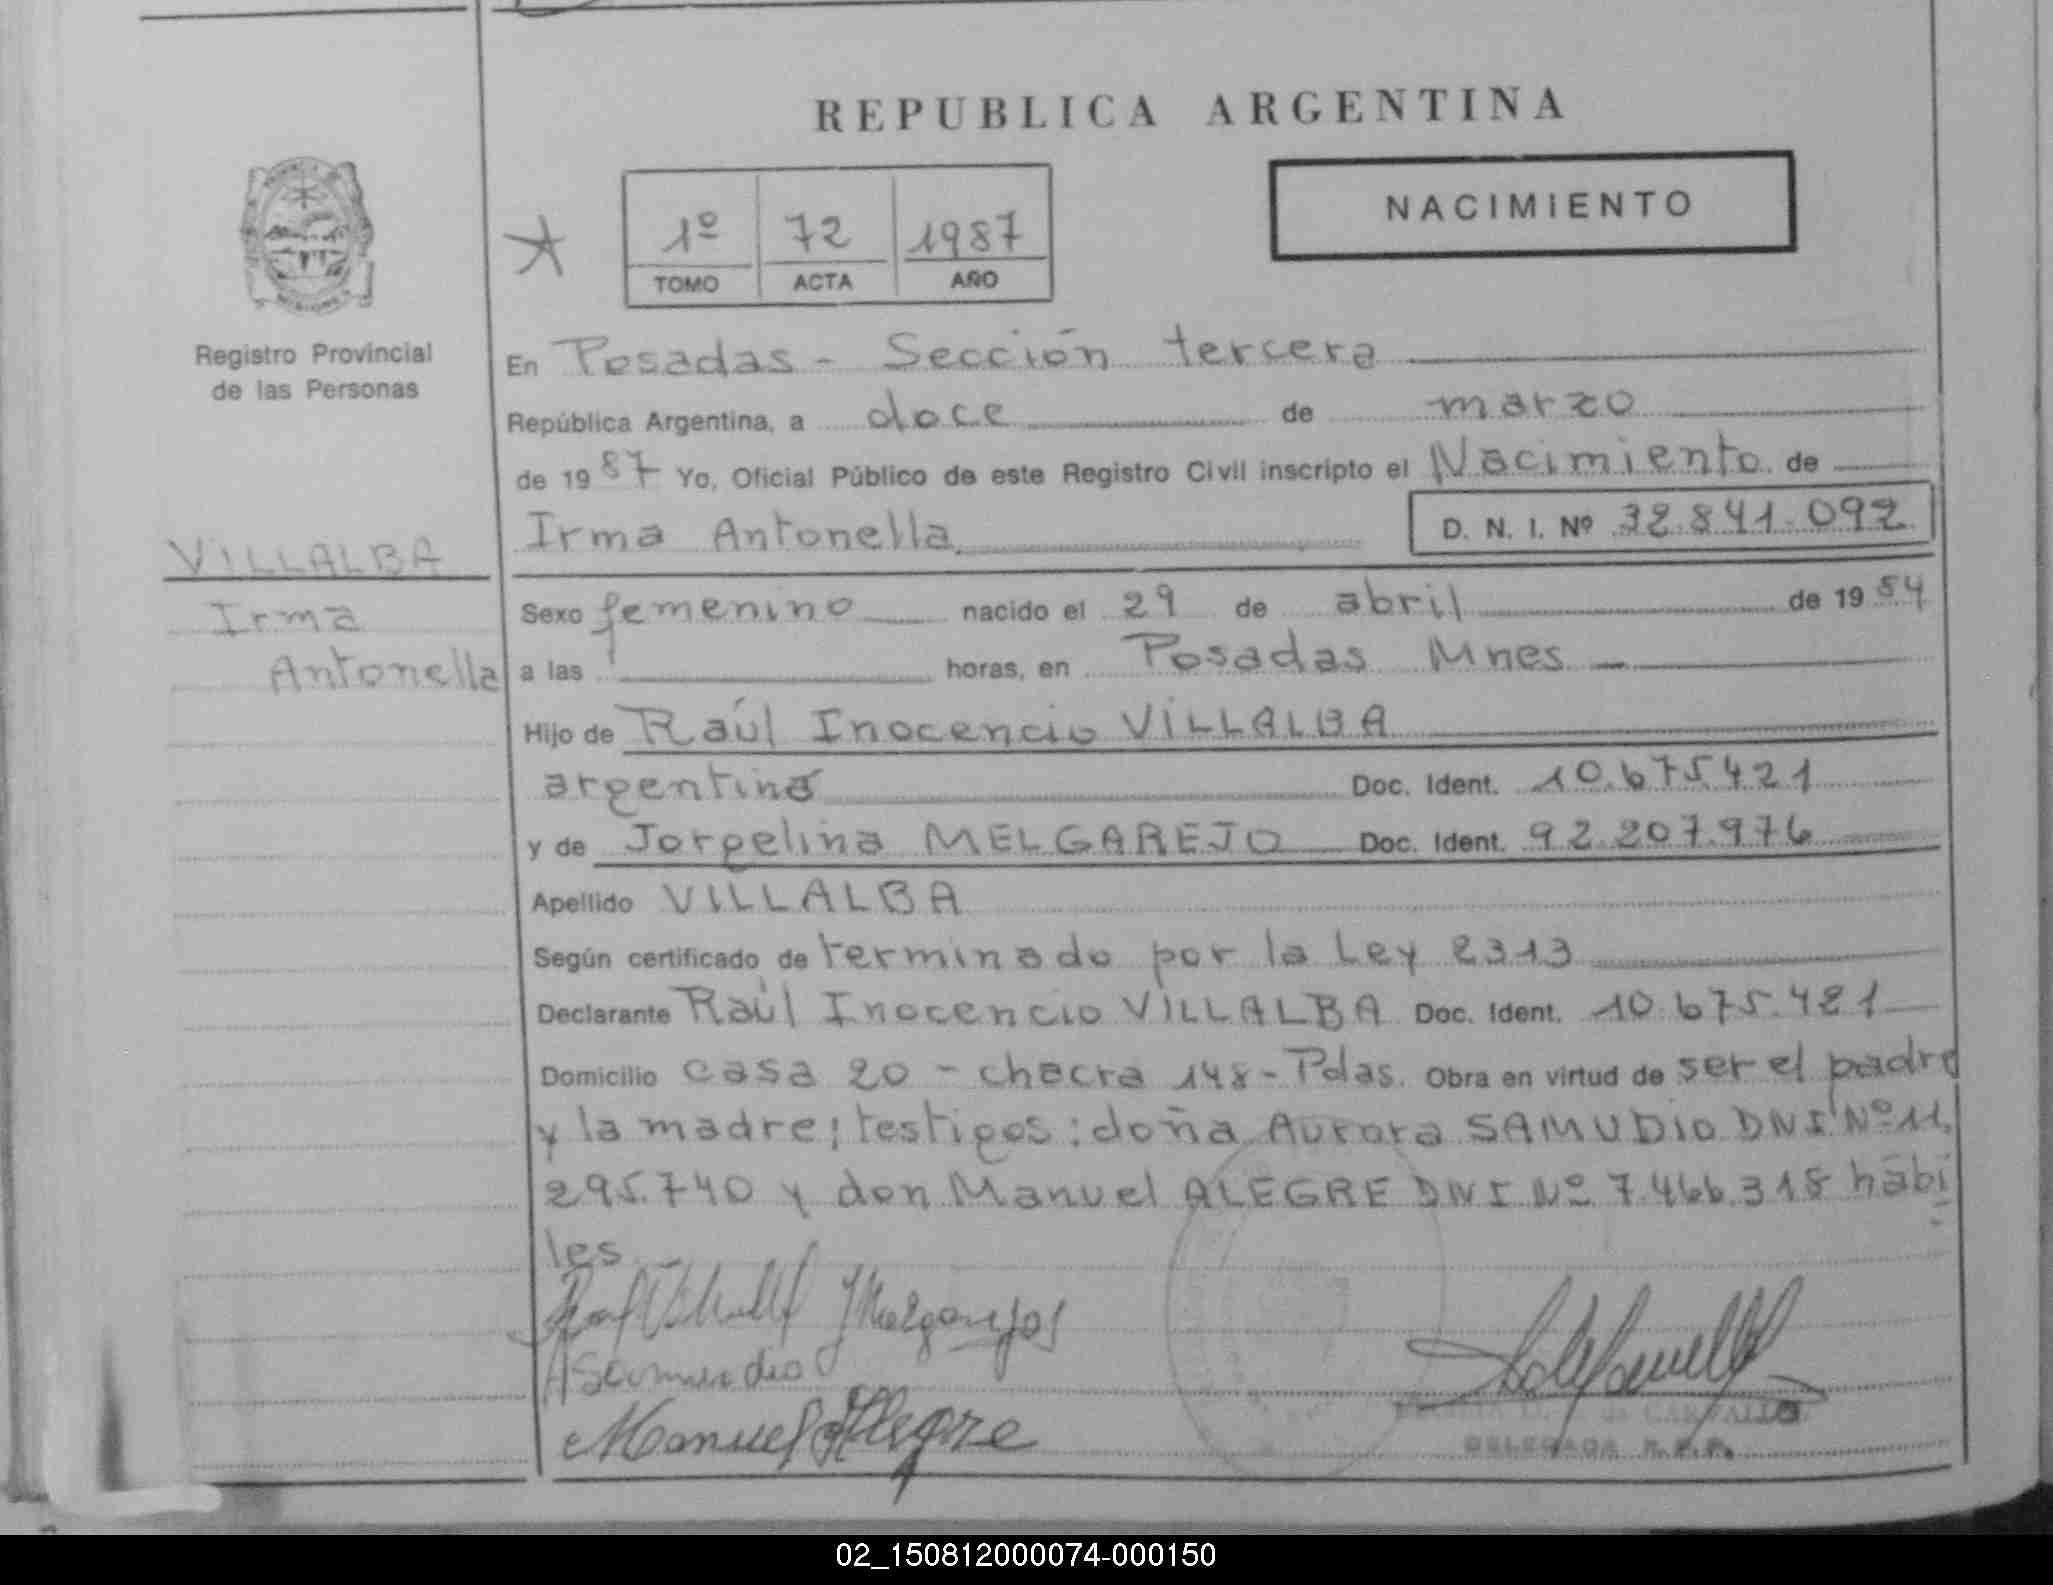 REPUBLICA ARGENTINA
NACIMIENTO
1º 72 1987
TOMO ACTA AÑO
Registro Provincial
de las Personas
En Posadas - Sección tercera
República Argentina, a doce de marzo
de 1987 Yo, Oficial Público de este Registro Civil inscripto el Nacimiento de
Irma Antonella D. N. I. Nº 32.841.092
VILLALBA
Irma
Antonella
Sexo femenino nacido el 29 de abril de 19
a las horas, en Posadas Mnes
Hijo de Raúl Inocencio VILLALBA
argentina Doc. Ident. 10.675.421
y de Jorgelina MELGAREJO Doc. Ident. 92.207.976
Apellido VILLALBA
Según certificado de terminado por la Ley 2313
Declarante Raúl Inocencio VILLALBA Doc. Ident. 10.675.421
Domicilio casa 20 - chacra 148 - Pdas. Obra en virtud de ser el padre
y la madre; testigos: doña Aurora SAMUDIO DNI Nº 11.
295.740 y don Manuel ALEGRE DNI Nº 7.466.318 hábi
les
JMelgarejos
ASamudio
Manuel Alegre
DELEGADA R.P.P.
02_150812000074-000150